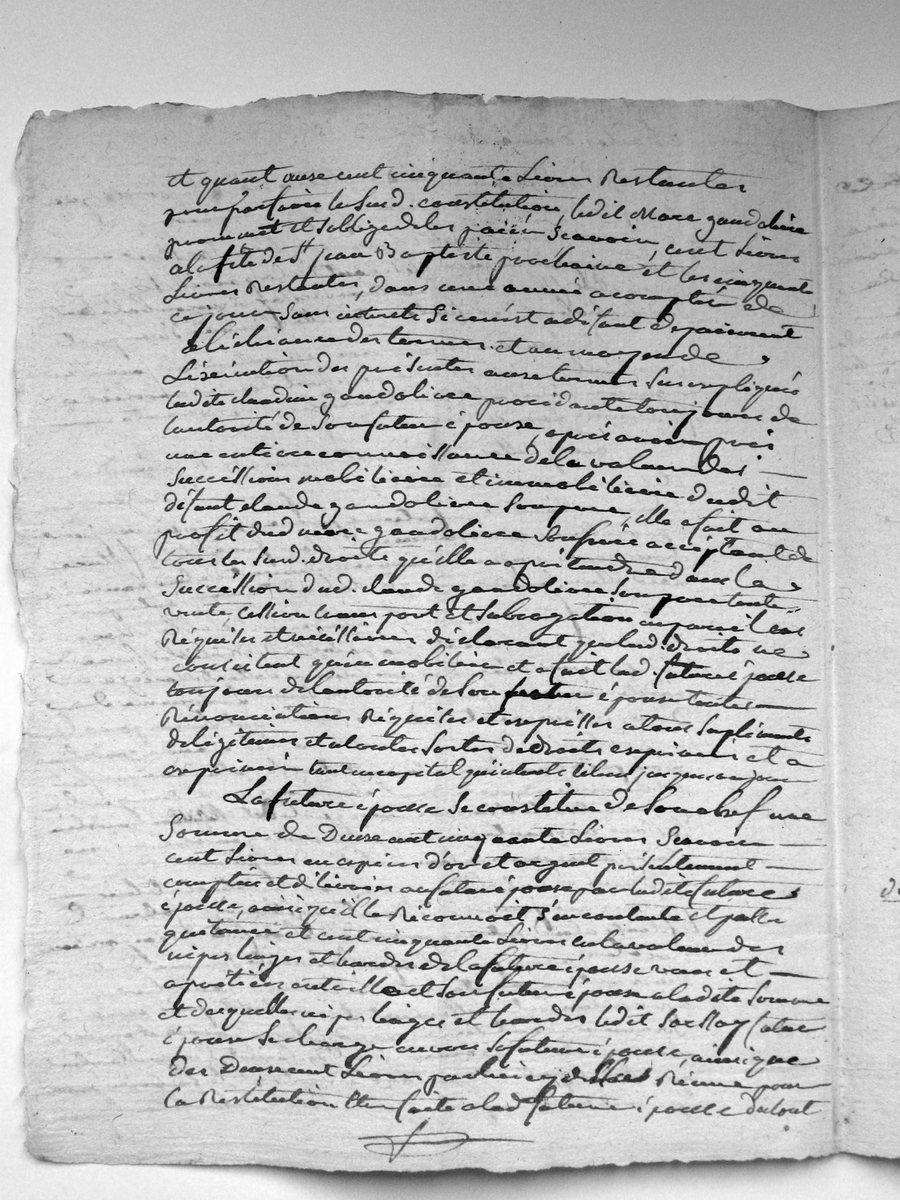 Et quant aux cent cinquante Livres Restantes
pour parfaire la Susd. constitution, ledit Marc gandoliere
promet et s'oblige de les païer Scavoir, cent Livres
a la fete de St jean Baptiste prochaine et les cinquante
Livres Restantes, dans une année a compter de
ce jour Sans interets Si ce n'est a défaut de paiement
a l'échéance des termes. et au moyen de
L'éxécution des présentes aux termes Sus expliqués
ladite claudine gandoliere procédante toujours de
l'autorité de Son futur époux, après avoir pris
une entiere connoissance de la valeur des
Succéssions mobiliaire et immobiliaire dudit
défunt claude gandoliere Son pere, elle a fait au
profit dud. marc gandoliere Son frere acceptant de
tous les Susd. droits qu'elle a a prétendre dans la
Succéssion dud. claude gandoliere Son pere toute
vente, cession transport et Subrogation en pareil cas
Réquises et nécéssaires déclarant que lesd. droits ne
consistent qu'en mobilier et a fait lad. future épouse
toujours de l'autorité de Son futur époux toutes
Rénonciations Réquises et expresses a tous Supléments
de légitimes et a toutes Sortes de droits expirés et a
expirer tant en capital qu'interets échus jusques au jour
La future épouse Se constitue de Son chef une
Somme de Deux cent cinquante Livres Scavoir
cent Livres en espèces d'or et argent présentement
comptées et délivrées au futur époux par ladite future
épouse, ainsi qu'il le Réconnoit S'en contente et passe
quitance et cent cinquante Livres en la valeur des
nipes linges et hardes de la future épouse vues et
apretiées entr'elle et Son futur époux a ladite Somme
et desquelles nipes linges et hardes ledit futur
époux Se charge envers la future épouse, ainsi que
des Deux cent Livres pour
La Restitution En faite a lad. future épouse du tout